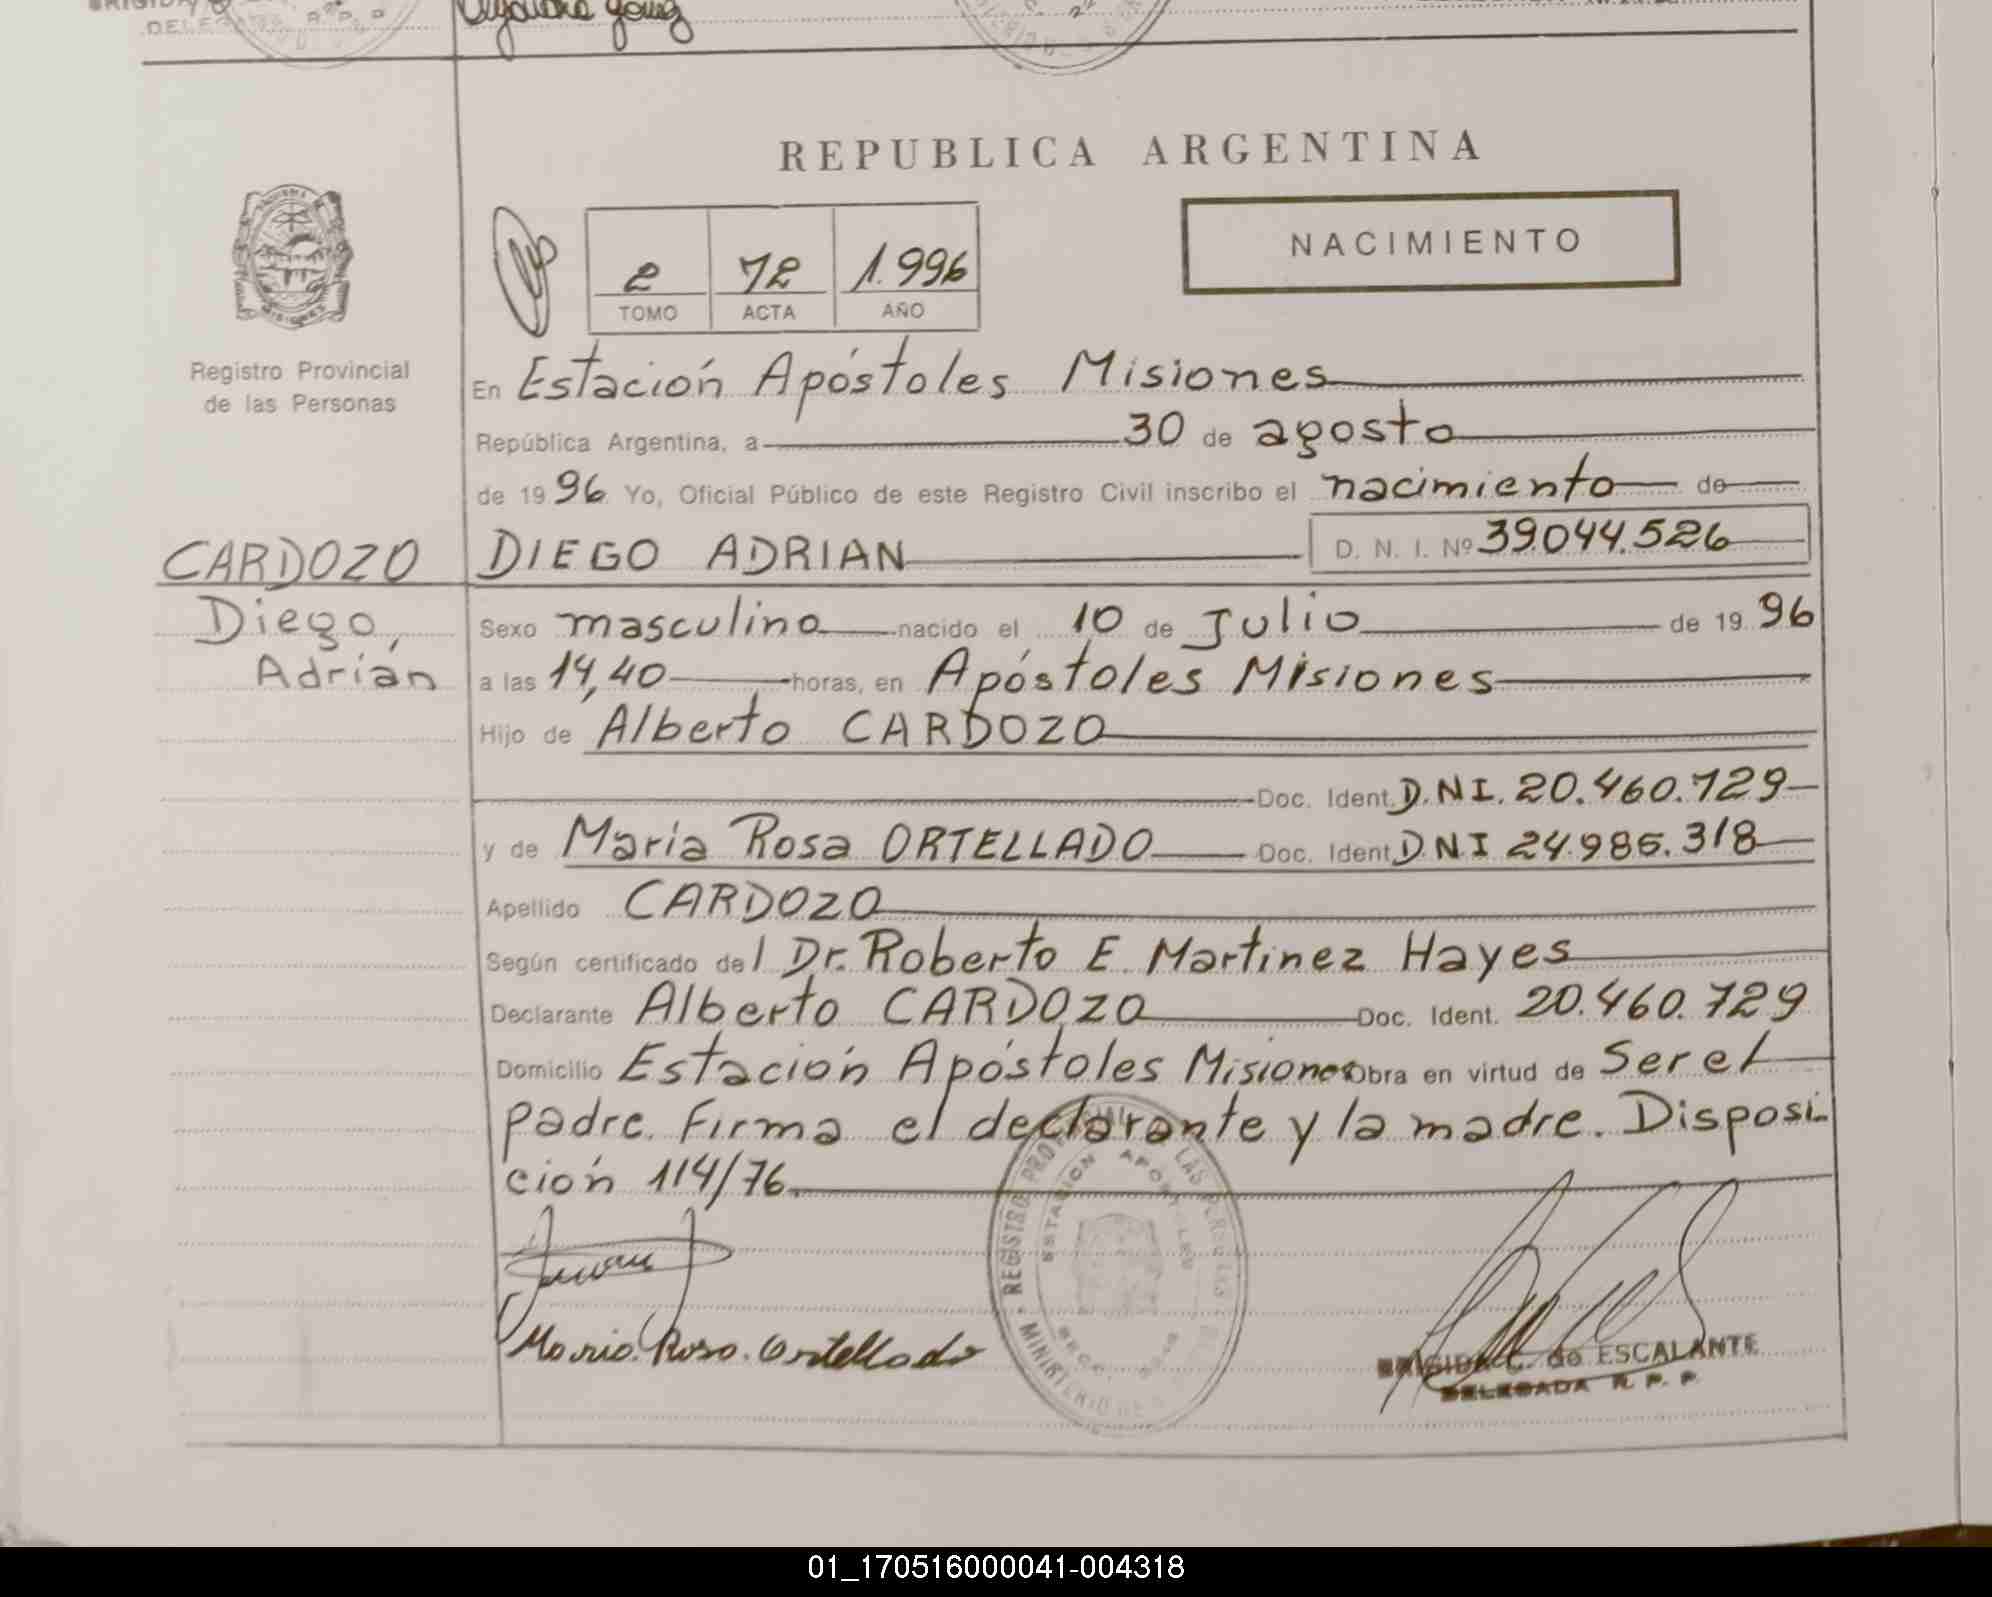 DELEGADA R.P.P.
REPUBLICA ARGENTINA
NACIMIENTO
2 72 1.996
TOMO ACTA AÑO
MISIONES
Registro Provincial
de las Personas
En Estación Apóstoles Misiones
República Argentina, a 30 de agosto
de 1996 Yo, Oficial Público de este Registro Civil inscribo el nacimiento de
CARDOZO DIEGO ADRIAN D. N. I. Nº 39.044.526
Diego, Sexo masculino nacido el 10 de Julio de 1996
Adrián a las 14,40 horas, en Apóstoles Misiones
Hijo de Alberto CARDOZO
Doc. Ident. D.N.I. 20.460.729
y de María Rosa ORTELLADO Doc. Ident. DNI 24.985.318
Apellido CARDOZO
Según certificado del Dr. Roberto E. Martinez Hayes
Declarante Alberto CARDOZO Doc. Ident. 20.460.729
Domicilio Estación Apóstoles Misiones Obra en virtud de Ser el
padre. Firma el declarante y la madre. Disposi-
ción 114/76.
REGISTRO PROVINCIAL DE LAS PERSONAS
ESTACION APOSTOLES
Maria. Rosa. Ortellado
BRIGIDA C. de ESCALANTE
DELEGADA R. P. P.
01_170516000041-004318